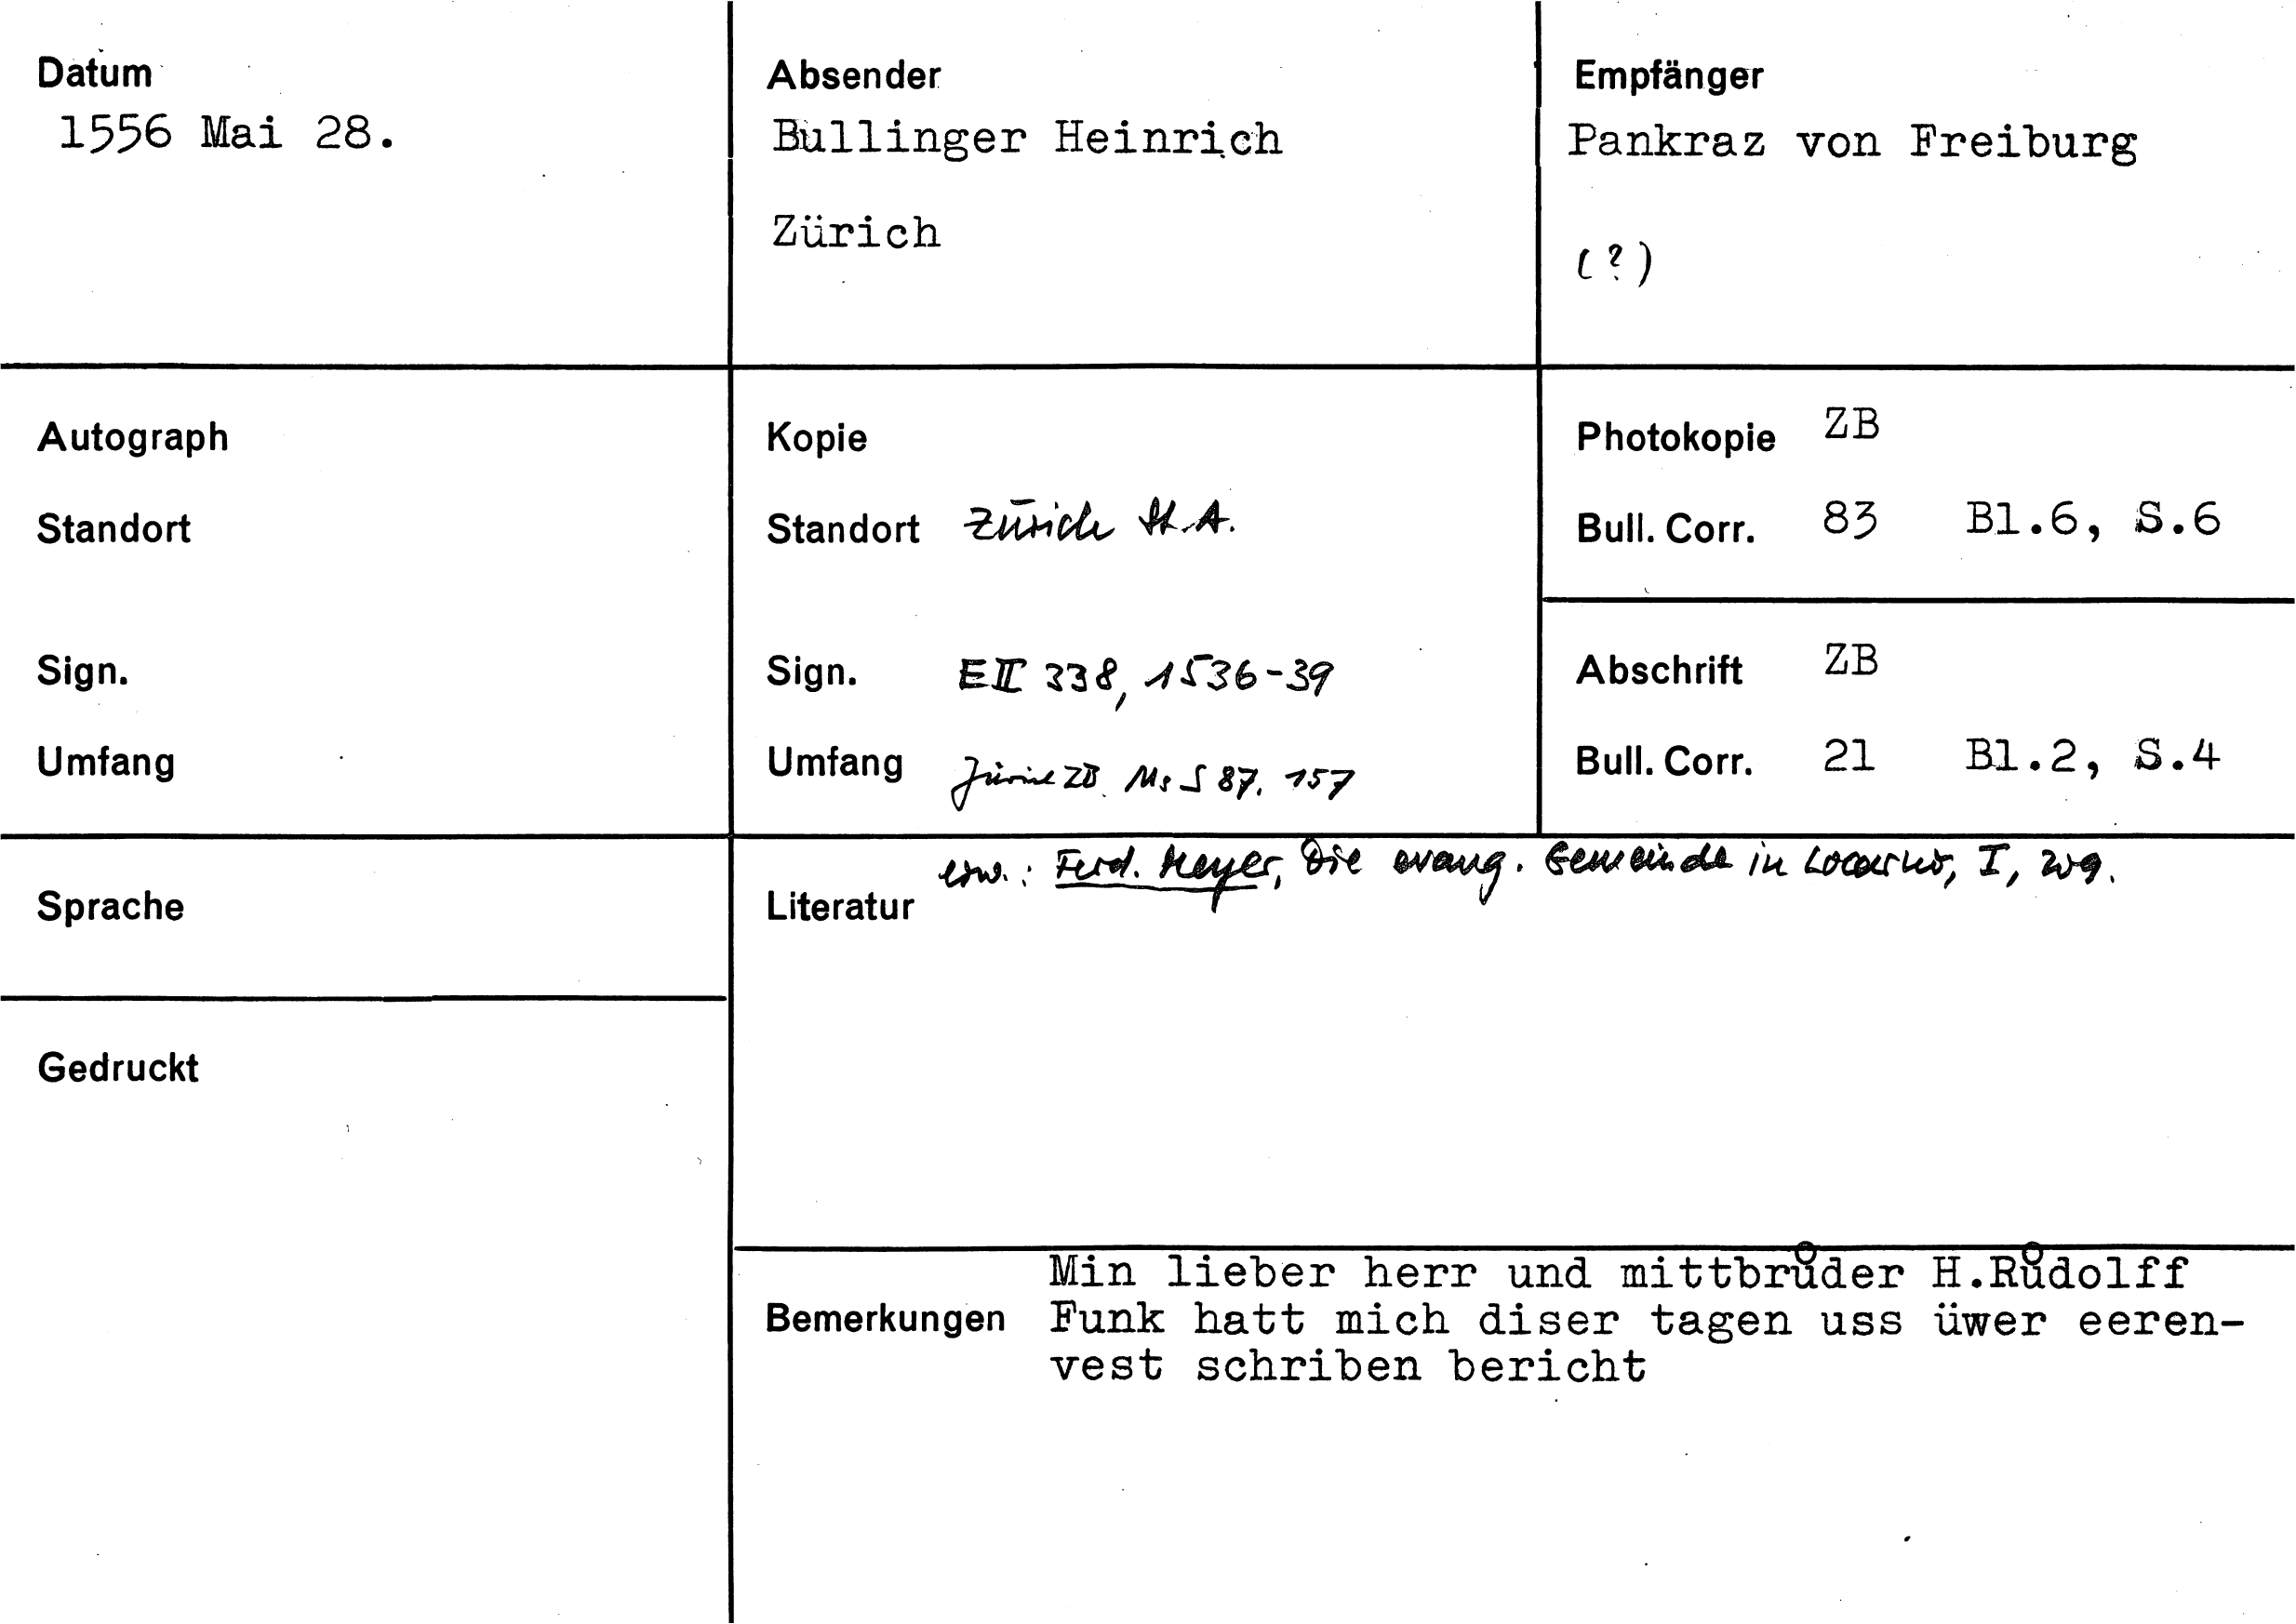 Datum
1556 Mai 28.
Absender
Bullinger Heinrich
Zürich
Empfänger
Pankraz von Freiburg
(?)
Autograph
Standort
Sign.
Umfang
Kopie
Standort Zürich St.A.
Sign. EII 338, 1536-39
Umfang Zürich ZB Ms S 87. 157
Photokopie ZB
Bull. Corr. 83 Bl.6, S.6
Abschrift ZB
Bull. Corr. 21 Bl.2, S.4
Sprache
Gedruckt
erw.: Ferd. Meyer, Die evang. Gemeinde in Locarno, I,
Literatur
Min lieber herr und mittbrůder H.Růdolff
Bemerkungen Funk hatt mich diser tagen uss üwer eeren-
vest schriben bericht